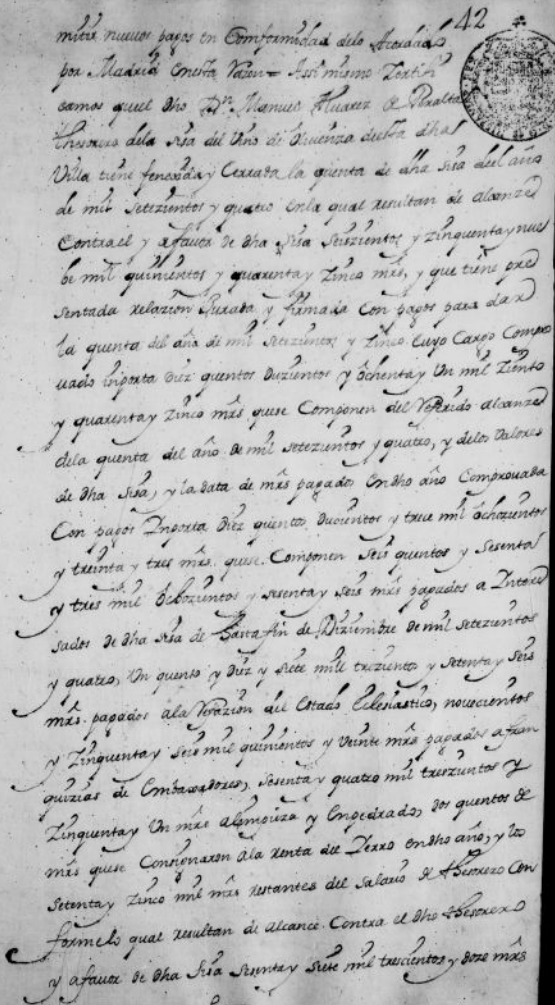 42
mitir nuevos pagos en Comformidad delo Acordado
por Madrid enesta razon = Assi mismo Zertifi
camos que el dho Dn Manuel Alvarez de Peralta
thesorero dela sisa del Vino de de esta dha
Villa tiene fenezida y Cerrada la quenta de dha sisa deel año
de mil setezientos y quatro en la qual resultan de alcanze
Contra el y afavor de dha sisa seiszientos y zinquenta y nue
be mil quinientos y quarenta y zinco mrs, y que tiene pre
sentada relazion Jurada y firmada Con pagos para dar
la quenta del año de mil setezientos y zinco Cuyo Cargo Compro
vado inporta diez quentos duzientos y ôchenta y Un mil ziento
y quarenta y zinco mrs que se Componen del Referido alcanze
dela quenta del año de mil setezientos y quatro, y delos Valores
de dha sisa, y la data de mrs pagados en dho año Comprovada
Con pagos Inporta diez quentos ducientos y trece mil ôchozientos
y treinta y tres mrs. que se Componen seis quentos y sesenta
y tres mil ôchozientos y sesenta y seis mrs pagados a Intere
sados de dha sisa de hasta fin de Diziembre de mil setezientos
y quatro, Un quento y diez y siete mill trezientos y setenta y seis
mrs. pagados ala Refazion del Estado Eclesiastico, novecientos
y zinquenta y seis mil quinientos y veinte mrs pagados afran
quizias de Embaxadores, sesenta y quatro mil treszientos y
zinquenta y Un mrs alimpieza y Enpedrado, dos quentos de
mrs que se Consignaron ala renta del Zerro en dho año, y los
setenta y zinco mil mrs restantes del salario de thesorero Con
forme lo qual resultan de alcance Contra el dho thesorero
y afavor de dha sisa sesenta y siete mil trescientos y doze mrs